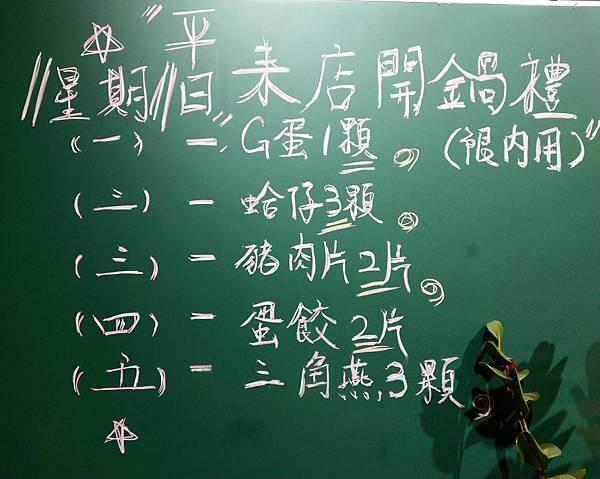 ☆"平日"來店開鍋禮
//星期// (限內用)"
(一) — G蛋1顆。
(二) — 蛤仔3顆。
(三) — 豬肉片2片。
(四) — 蛋餃2片
(五) — 三角燕3顆。
☆